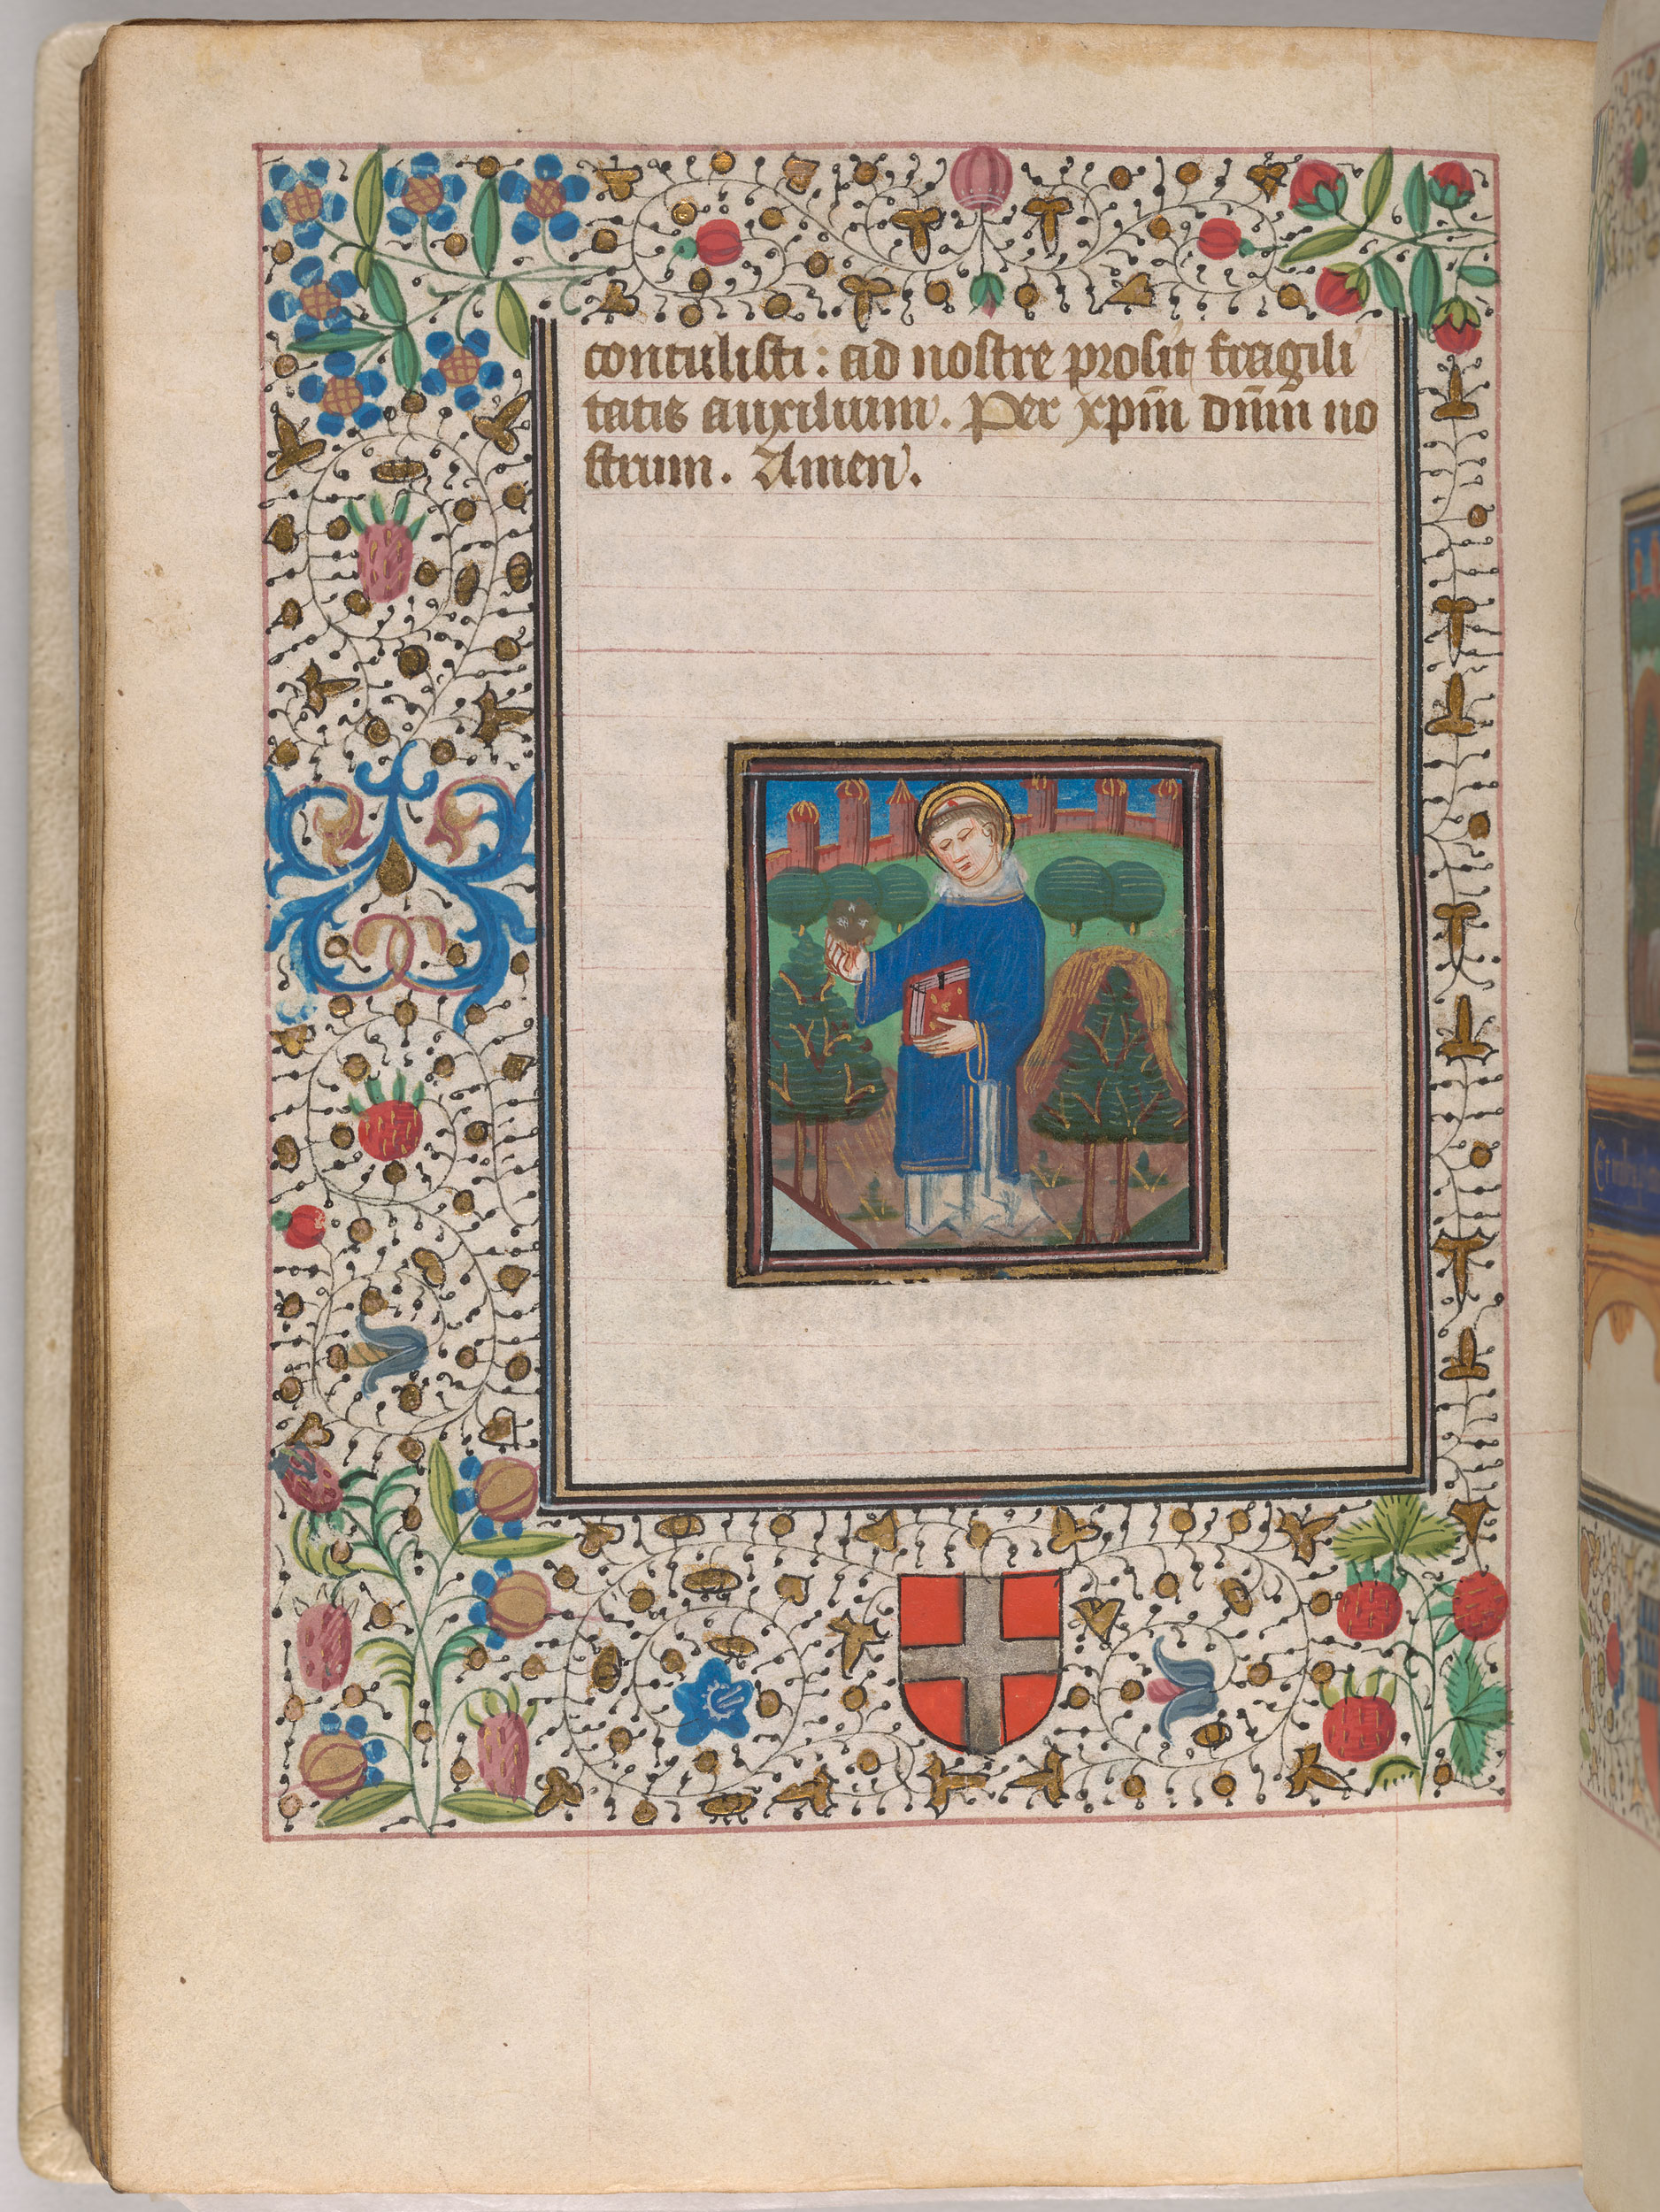 contulisti : ad nostre prosit fragili
tatis auxilium. Per xp̄m dn̄m no
strum. Amen.